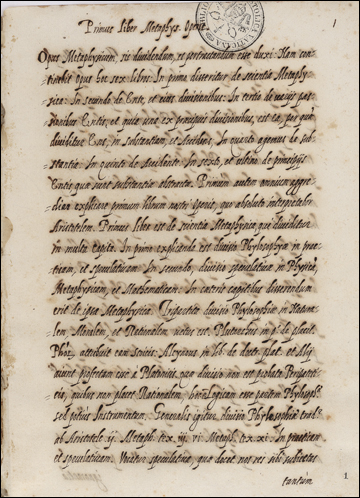 1
Primus liber Metaphys. Operis
Opus Metaphysicum sic dividendum, et pertractandum esse duxi: Nam con-
tinebit opus hoc sex libros. In primo disseritur de scientia Metaphy-
sica: In secundo de Ente, et eius divisionibus: In tertio de
Entis, et quia una ex principijs divisionibus, est ea, per quam
dividitur Ens, in substantiam, et Accidens, In quarto agemus de sub-
stantia: In quinto de Accidente. In sexto, et ultimo de principijs
Entis quae sunt substantiae abstractae. Primum autem omnium aggre-
diar explicare primum librum nostri operis, quo absolute interpretabor
Aristotelem. Primus liber est de scientia Metaphysica, qui dividitur
in multa Capita. In primo explicanda est divisio Phylosophiae in prac-
ticam, et speculativam. In secundo, divisio speculativae in Physicam,
Metaphysicam, et Mathematicam. In caeteris capitibus disserendum
erit de ipsa Metaphysica. divisio Phylosophiae in Natura-
lem, Moralem, et Rationalem, Plutarchus in p.º de placit.
Phos. attribuit eam Alcinous in lib. de doct. plat. et
profectam esse à Platonicis, quae divisio non est probata
nobis non placet Rationalem, sive Logicam esse partem Phylosophi
sed potius Instrumentum. Generalis igitur divisio Phylosophiae
ab Aristotele ij. Metaph. tex. iij. vi. Metaph. tex. xi. In practicam
et speculativam. Vocatur speculativa, quae docet nos res sibi subiectas
tantum
1